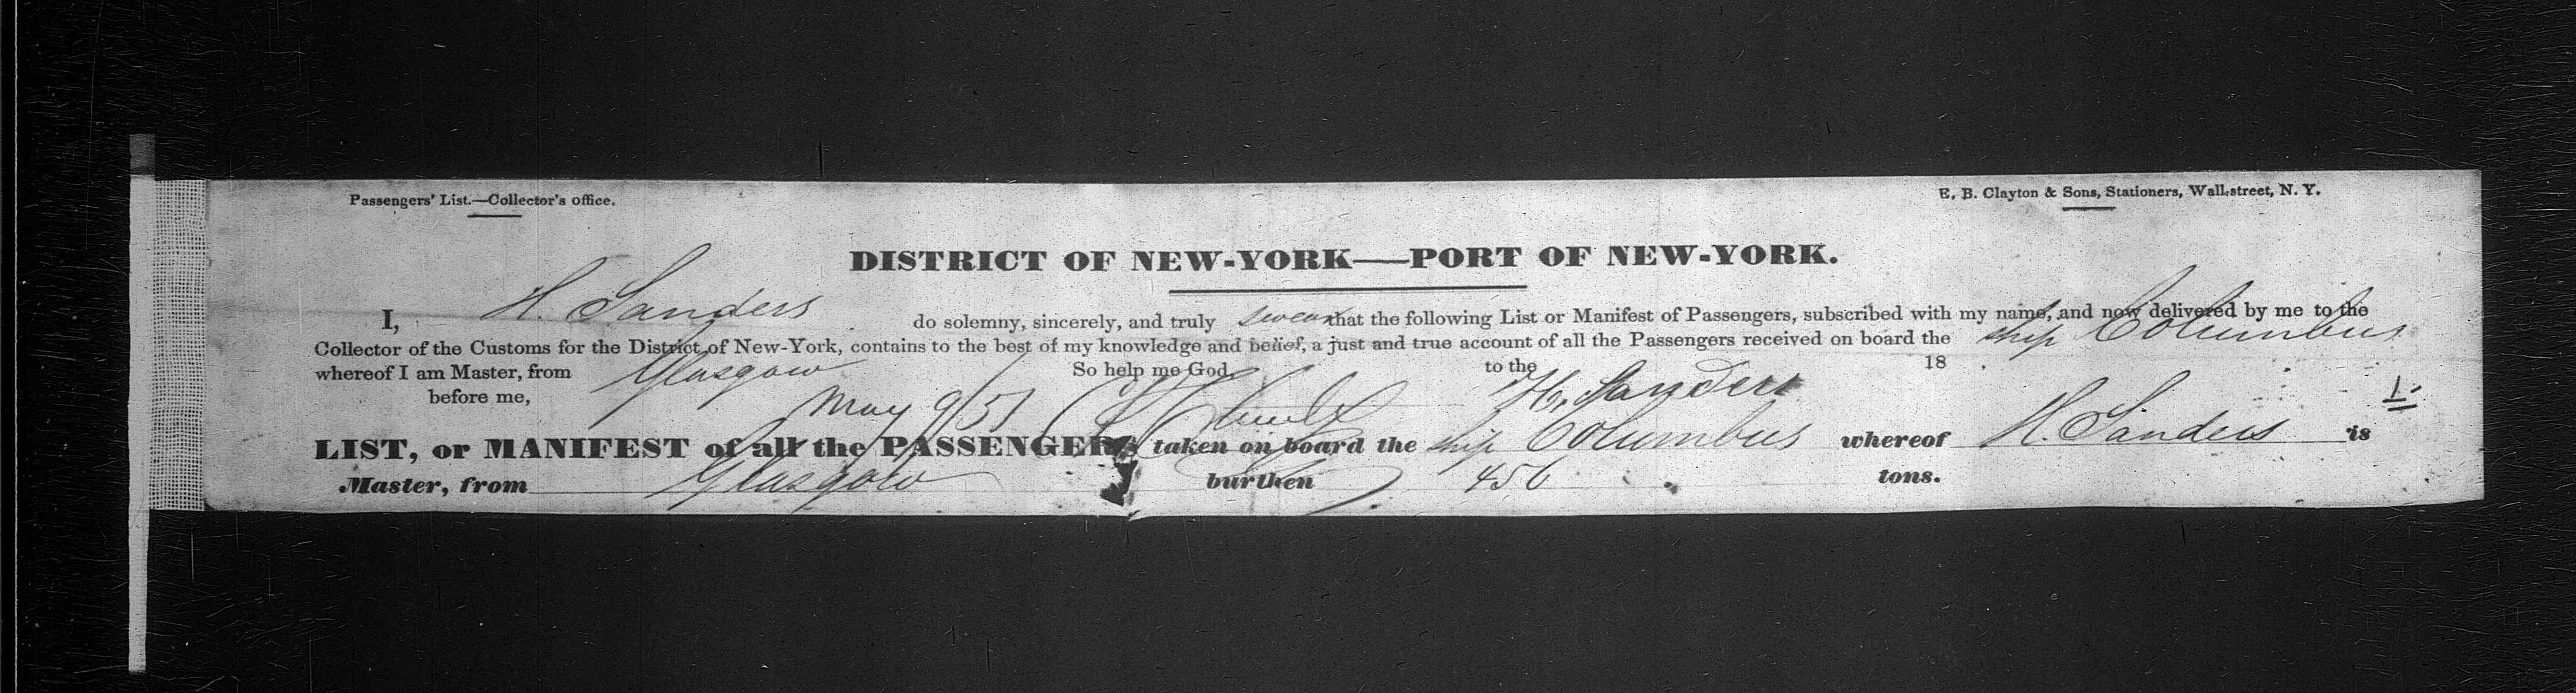 Passengers' List.—Collector's office.
E. B. Clayton & Sons, Stationers, Wall-street, N. Y.
DISTRICT OF NEW-YORK—PORT OF NEW-YORK.
I, H. Sanders do solemny, sincerely, and truly swear that the following List or Manifest of Passengers, subscribed with my name, and now delivered by me to the
Collector of the Customs for the District of New-York, contains to the best of my knowledge and belief, a just and true account of all the Passengers received on board the ship Columbus
whereof I am Master, from Glasgow So help me God. to the 18
before me, May 9/51 H. Sanders
1
LIST, or MANIFEST of all the PASSENGERS taken on board the ship Columbus whereof H. Sanders is
Master, from Glasgow burthen 456 tons.